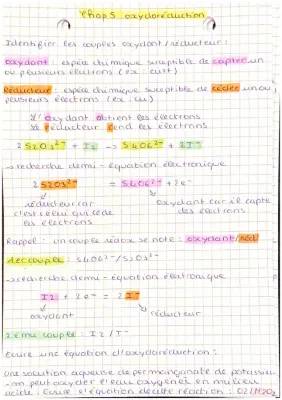 Chap 5 oxydoréduction
Identifier les couples oxydant / réducteur :
oxydant : espèce chimique suceptible de capter un
ou plusieurs électrons (ex : cu2+)
Réducteur : espèce chimique suceptible de céder un ou
plusieurs électrons (ex : cu)
oxydant obtient les électrons
réducteur rend les électrons
2 S2O3²⁻ + I2 → S4O6²⁻ + 2I⁻
→ recherche demi-équation électronique
2 S2O3²⁻ = S4O6²⁻ + 2e⁻
réducteur car oxydant car il capte
c'est celui qui cède des électrons
les électrons
Rappel : un couple rédox se note : oxydant/réd
1er couple : S4O6²⁻/S2O3²⁻
→ recherche demi-équation électronique
I2 + 2e⁻ = 2I⁻
oxydant réducteur
2ème couple : I2/I⁻
Ecrire une équation d'oxydoréduction :
une solution aqueuse de permanganate de potassiu
-m peut oxyder l'eau oxygénée en milieu
acide. Ecrire l'équation de cette réaction : O2/H2O2